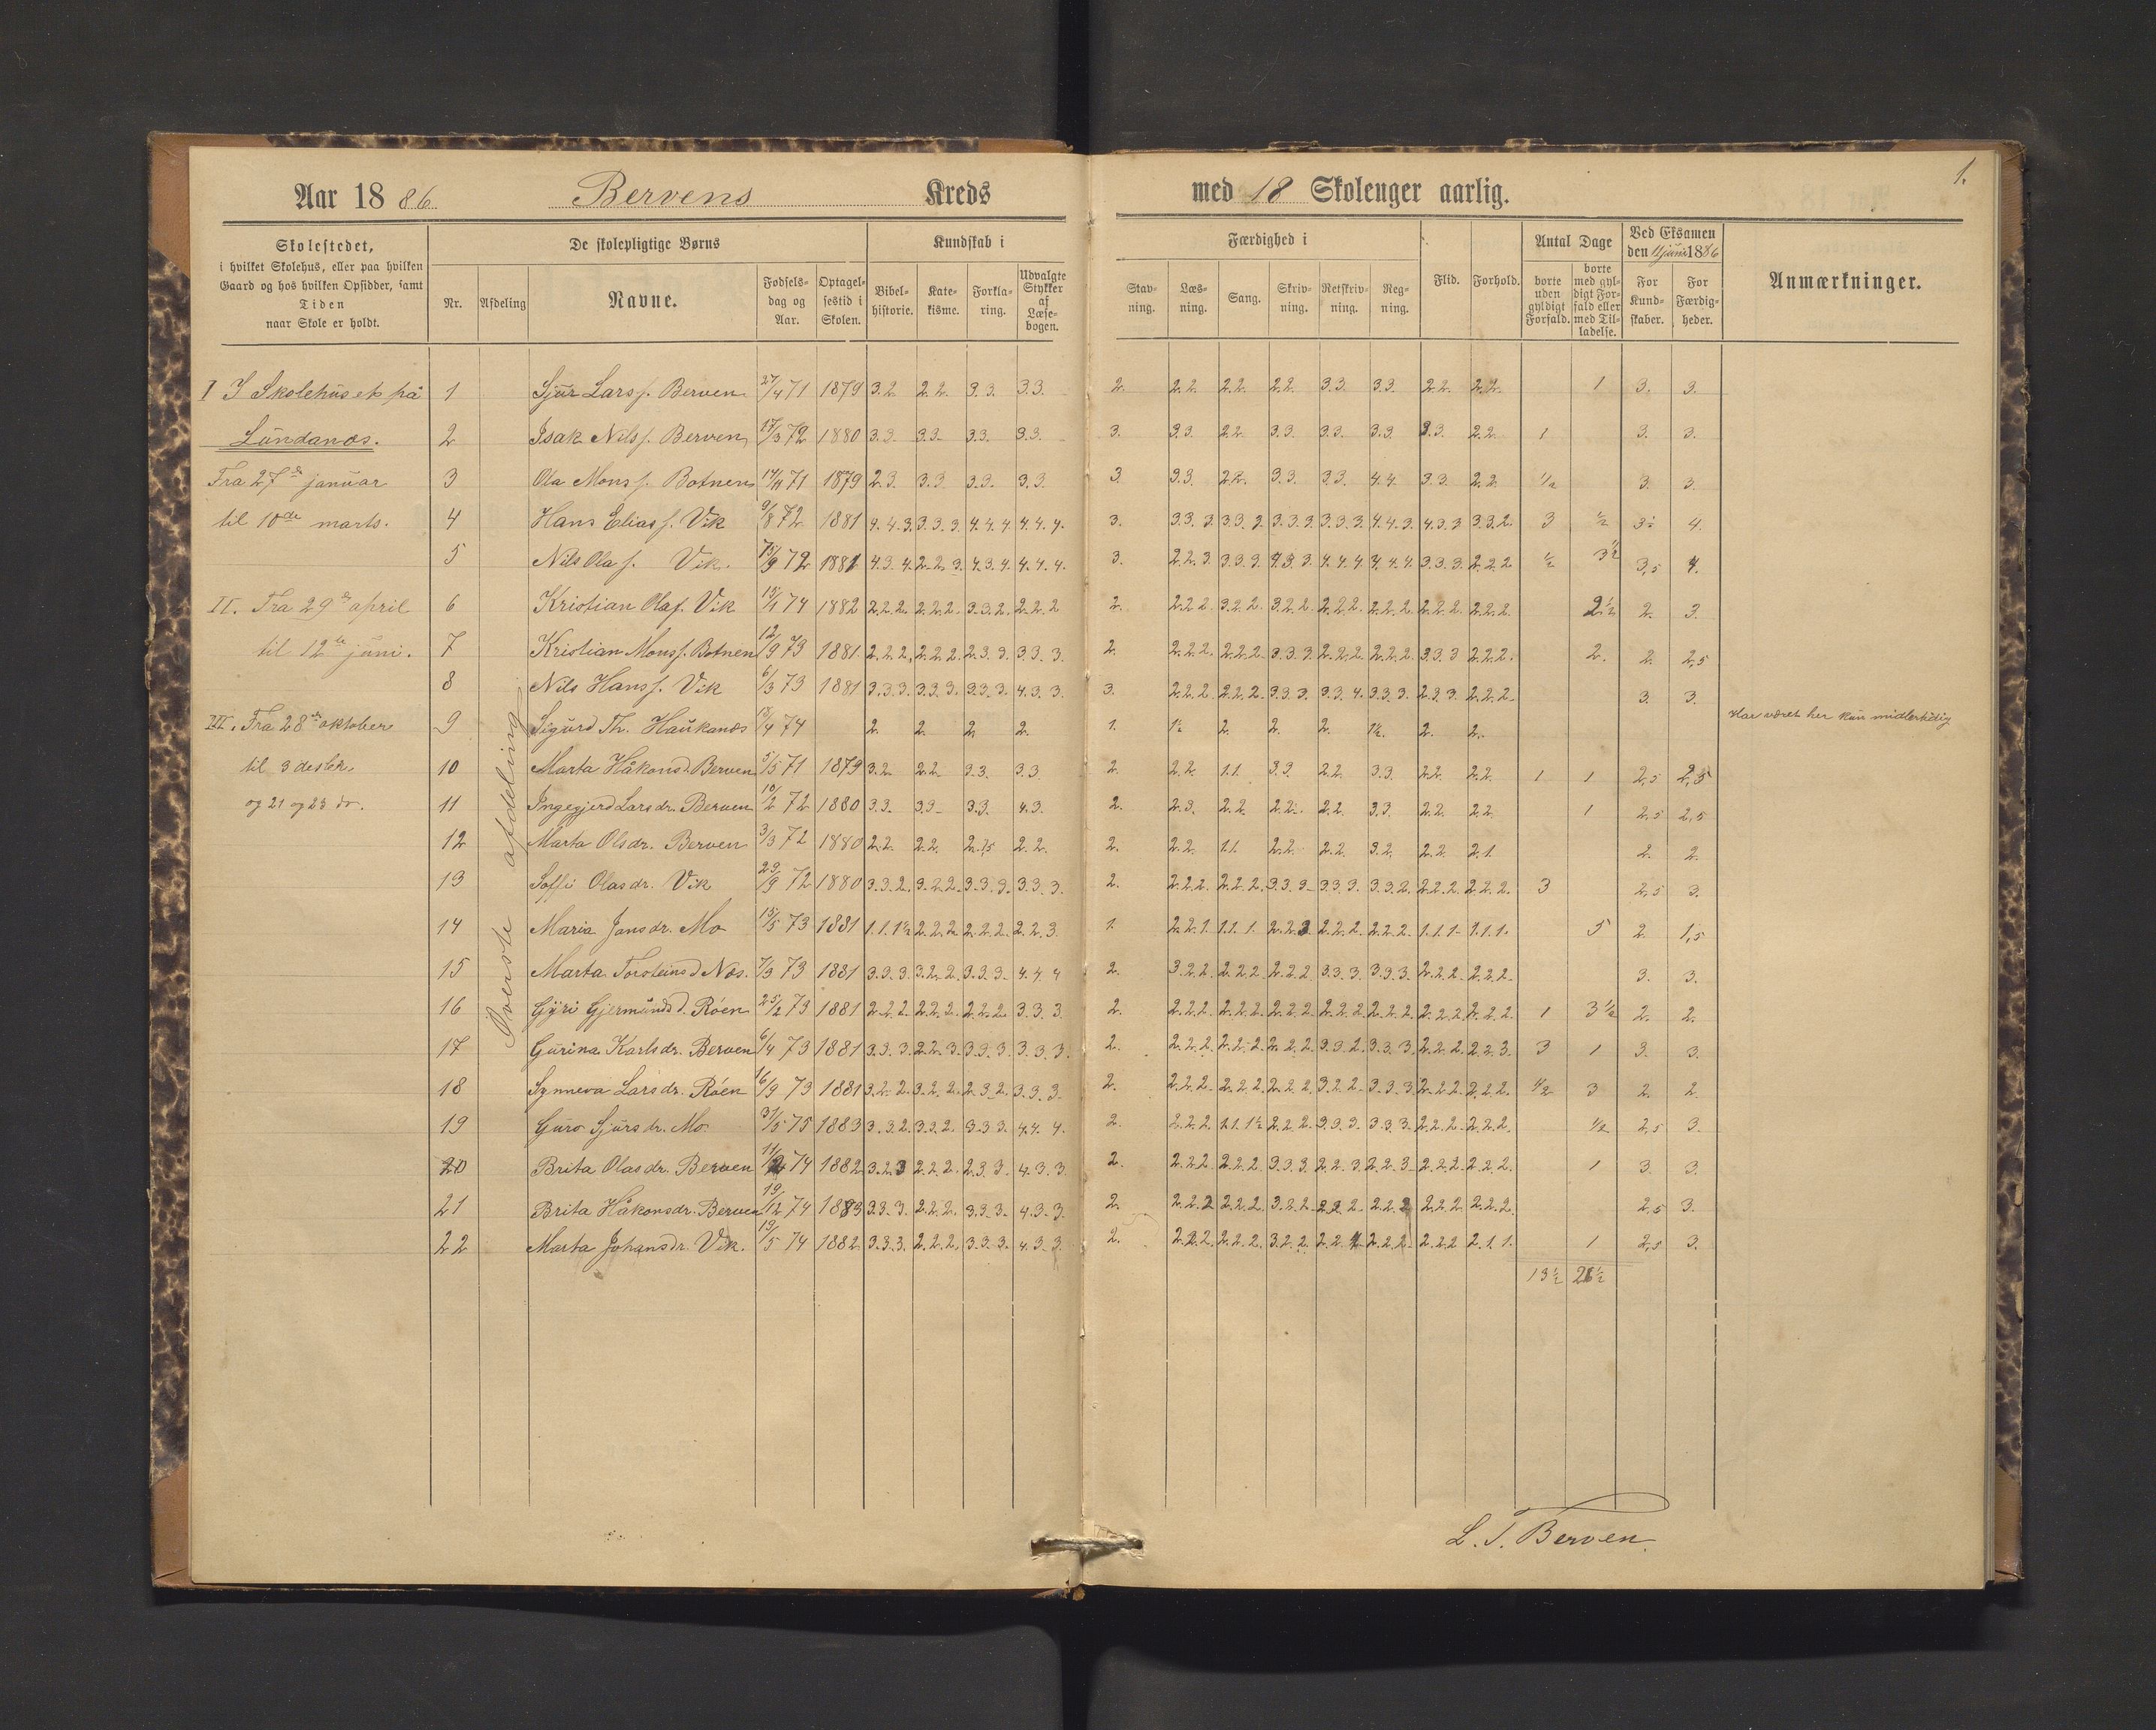 1.
Aar 1886 Bervens Kreds med 18 Skoleuger aarlig.
Skolestedet, i hvilket Skolehus, eller paa hvilken Gaard og hos hvilken Opsidder, samt Tiden naar Skole er holdt.
De skolepligtige Børns
Nr. Afdeling Navne. Fødselsdag og Aar. Optagelsestid i Skolen.
Kundskab i
Bibelhistorie. Katekisme. Forklaring. Udvalgte Stykker af Læsebogen.
Færdighed i
Stavning. Læsning. Sang. Skrivning. Retskrivning. Regning. Flid. Forhold.
Antal Dage
borte uden gyldigt Forfald. borte med gyldigt Forfald eller med Tilladelse.
Ved Eksamen den 11 juni 1886
For Kundskaber. For Færdigheder.
Anmærkninger.
I I Skolehuset på
Lundanæs.
Fra 27de januar
til 10de marts.
II. Fra 29de april
til 12te juni.
III. Fra 28de oktober
til 3 desbr.
og 21 og 23 do.
Øverste afdeling
1 Sjur Larss. Berven 27/4 71 1879 3.2. 2.2. 3.3. 3.3. 2. 2.2. 2.2. 2.2. 3.3. 3.3. 2.2. 2.2. 1 3. 3.
2 Isak Nilss. Berven 17/3 72 1880 3.3. 3.3. 3.3. 3.3. 3. 3.3. 2.2. 3.3. 3.3. 3.3. 3.3. 2.2. 1 3. 3.
3 Ola Monss. Botnen 14/11 71 1879 2.3. 3.3. 3.3. 3.3. 3. 3.3. 2.2. 3.3. 3.3. 4.4. 3.3. 2.2. 1/2 3. 3.
4 Hans Eliass. Vik 9/8 72 1881 4.4.3. 3.3.3. 4.4.4. 4.4.4. 3. 3.3.3. 3.3.3. 3.3.3. 3.3.3. 4.4.3. 4.3.3. 3.3.2. 3 1/2 4.
5 Nils Olas. Vik. 15/9 72 1881 4.3.4. 2.2.3. 4.3.4. 4.4.4. 3. 2.2.3. 3.3.3. 4.3.3. 4.4.4. 4.4.4. 3.3.3. 2.2.2. 1/2 3 1/2 3,5 4.
6 Kristian Olas. Vik 15/1 74 1882 2.2.2. 2.2.2. 3.3.2. 2.2.2 2. 2.2.2. 3.2.2. 3.2.2. 2.2.2. 2.2.2. 2.2.2. 2.2.2. 2 1/2 2. 3.
7 Kristian Monss. Botnen 12/9 73 1881 2.2.2. 2.2.2. 2.3.3. 3.3.3. 2. 2.2.2. 2.2.2. 3.3.3. 2.2.2. 2.2.2. 3.3.3 2.2.2. 2. 2. 2,5
8 Nils Hanss. Vik 6/3 73 1881 3.3.3. 3.3.3. 3.3.3. 4.3.3. 3. 2.2.2. 2.2.2. 3.3.3. 3.3.4. 3.3.3. 2.3.3. 2.2.2. 3. 3.
9 Sigurd Th. Haukanæs 13/4 74 2. 2. 2. 2. 1. 1 1/2 2. 2. 2. 1 1/2. 2. 2. Har været her kun midlertidig
10 Marta Håkonsd. Berven 5/5 71 1879 3.2. 2.2. 3.3. 3.3. 2. 2.2. 1.1. 3.3. 2.2. 3.3. 2.2. 2.2. 1 1 2,5 2,5
11 Ingegjerd Larsdr. Berven 10/2 72 1880 3.3. 3.3. 3.3. 4.3. 2. 2.3. 2.2. 2.2. 2.2. 3.3. 2.2. 2.2. 1 2,5 2,5
12 Marta Olsdr. Berven 3/3 72 1880 2.2. 2.2. 2.1,5 2.2. 2. 2.2. 1.1. 2.2. 2.2. 3.2. 2.2. 2.1. 2. 2.
13 Soffi Olasdr. Vik 23/9 72 1880 3.3.2. 3.2.2. 3.3.3. 3.3.3. 2. 2.2.2. 2.2.2. 3.3.3. 3.3.3. 3.3.2. 2.2.2. 2.2.2. 3 2,5 3.
14 Maria Jansdr. Mo 15/5 73 1881 1.1.1 1/2 2.2.2. 2.2.2. 2.2.3. 1. 2.2.1. 1.1.1. 2.2.3 2.2.2. 2.2.2. 1.1.1. 1.1.1. 5 2. 1,5
15 Marta Torsteinsd Næs. 7/3 73 1881 3.3.3. 3.2.2. 3.3.3. 4.4.4 2. 3.2.2. 2.2.2. 2.2.2 3.3.3. 3.3.3. 2.2.2. 2.2.2. 3. 3.
16 Gyri Gjermundsd. Róen 25/2 73 1881 2.2.2. 2.2.2. 2.2.2. 3.3.3. 2. 2.2.2. 2.2.2. 2.2.2. 2.2.2. 2.2.2. 2.2.2. 2.2.2. 1 3 1/2 2. 2.
17 Gurina Karlsdr. Berven 6/4 73 1881 3.3.3. 2.2.3. 3.3.3. 3.3.3. 2. 2.2.2. 2.2.2. 2.2.2. 3.3.2. 3.3.3. 2.2.2. 2.2.3. 3 1 3. 3.
18 Synneva Larsdr. Róen 16/9 73 1881 3.2.2. 3.2.2. 2.3.2. 3.3.3. 2. 2.2.2. 2.2.2. 2.2.2. 3.2.2. 3.3.3. 2.2.2. 2.2.2. 1/2 3 2. 2.
19 Guro Sjursdr. Mo. 31/5 75 1883 3.3.2. 3.3.2. 3.3.3. 4.4.4. 2. 2.2.2. 1.1.1 1/2 2.2.2. 3.3.3. 3.3.3. 2.2.2. 2.2.2. 1/2 2,5 3.
20 Brita Olasdr. Berven 74 1882 3.2.3 2.2.2. 2.3.3. 4.3.3. 2. 2.2.2. 2.2.2. 3.3.3. 2.2.3. 2.2.3. 2.2.2. 2.2.2. 1 3. 3.
21 Brita Håkonsdr. Berven 19/12 74 1883 3.3.3. 2.2.2. 3.3.3. 4.3.3. 2. 2.2.2 2.2.2. 3.2.2. 2.2.2. 2.2.2 2.2.2. 2.2.2. 2,5 3.
22 Marta Johansdr. Vik. 19/5 74 1882 3.3.3. 2.2.2. 3.3.3. 4.3.3. 2. 2.2.2. 2.2.2. 3.2.2. 2.2. 2.2.2. 2.2.2 2.1.1. 1 2,5 3.
13 1/2 26 1/2
L. T. Berven.